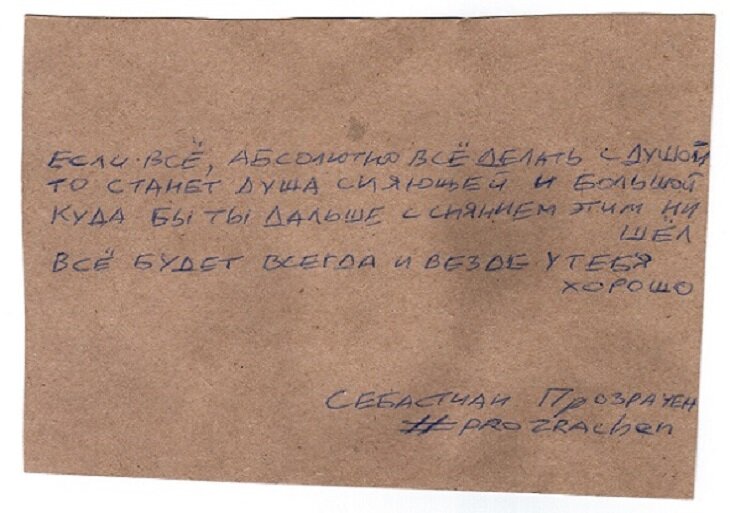 ЕСЛИ ВСЁ, АБСОЛЮТНО ВСЁ ДЕЛАТЬ С ДУШОЙ
ТО СТАНЕТ ДУША СИЯЮЩЕЙ И БОЛЬШОЙ
КУДА БЫ ТЫ ДАЛЬШЕ С СИЯНИЕМ ЭТИМ НИ
ШЁЛ
ВСЁ БУДЕТ ВСЕГДА И ВЕЗДЕ У ТЕБЯ
ХОРОШО
СЕБАСТИАН ПРОЗРАЧЕН
#PROZRAchen